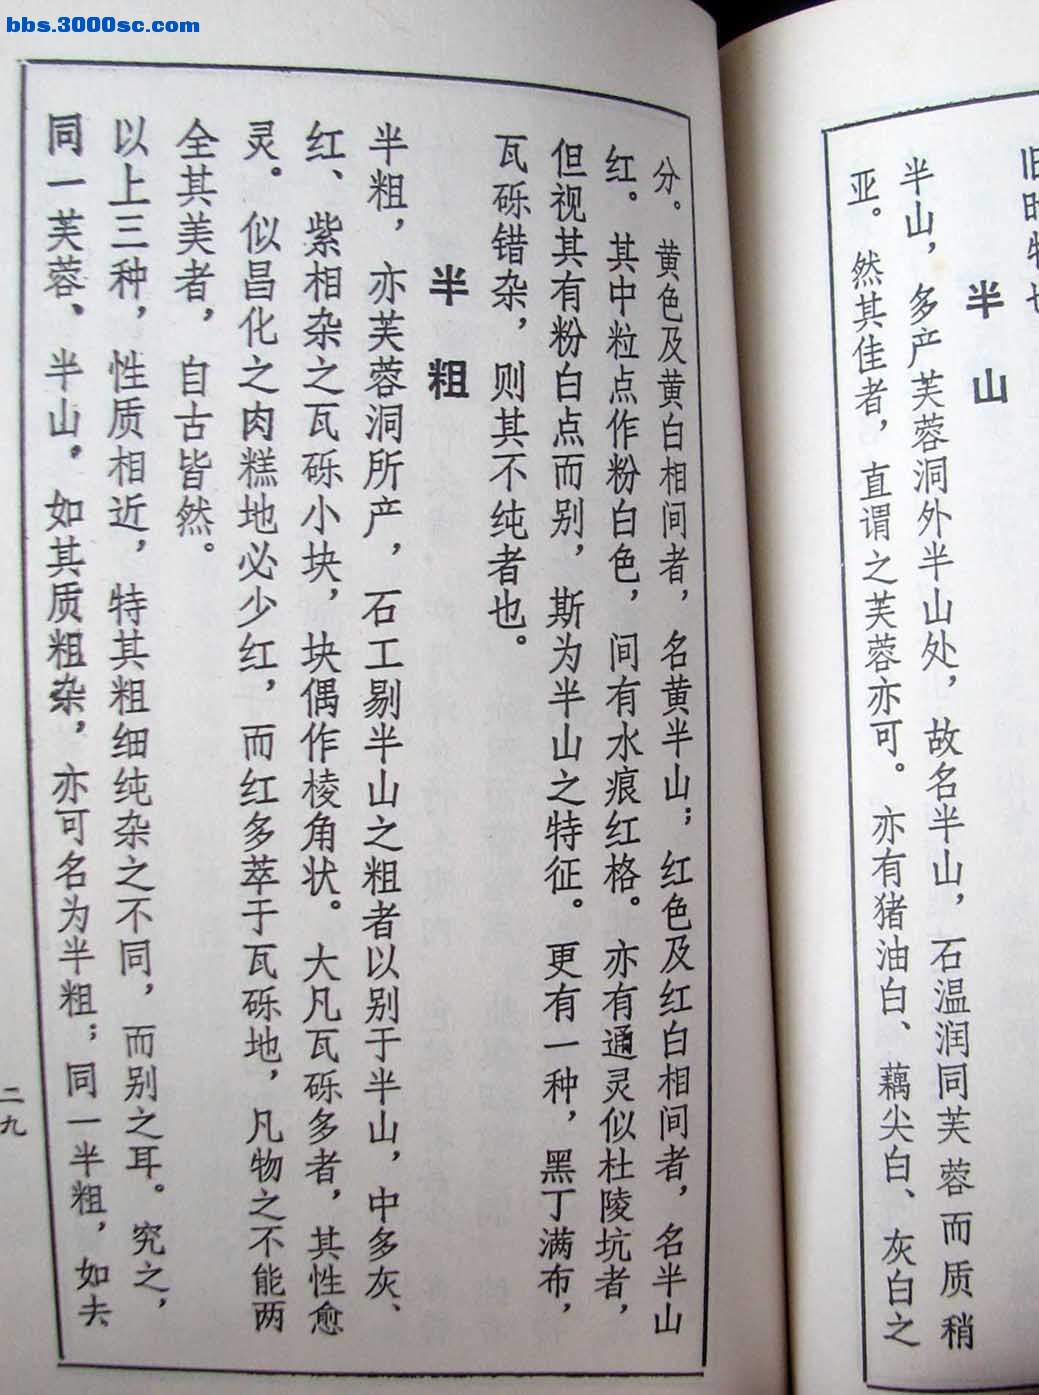 bbs.3000sc.com
半山
半山，多产芙蓉洞外半山处，故名半山，石温润同芙蓉而质稍
亚。然其佳者，直谓之芙蓉亦可。亦有猪油白、藕尖白、灰白之
分。黄色及黄白相间者，名黄半山；红色及红白相间者，名半山
红。其中粒点作粉白色，间有水痕红格。亦有通灵似杜陵坑者，
但视其有粉白点而别，斯为半山之特征。更有一种，黑丁满布，
瓦砾错杂，则其不纯者也。
半粗
半粗，亦芙蓉洞所产，石工剔半山之粗者以别于半山，中多灰、
红、紫相杂之瓦砾小块，块偶作棱角状。大凡瓦砾多者，其性愈
灵。似昌化之肉糕地必少红，而红多萃于瓦砾地，凡物之不能两
全其美者，自古皆然。
以上三种，性质相近，特其粗细纯杂之不同，而别之耳。究之，
同一芙蓉、半山，如其质粗杂，亦可名为半粗；同一半粗，如去
二九